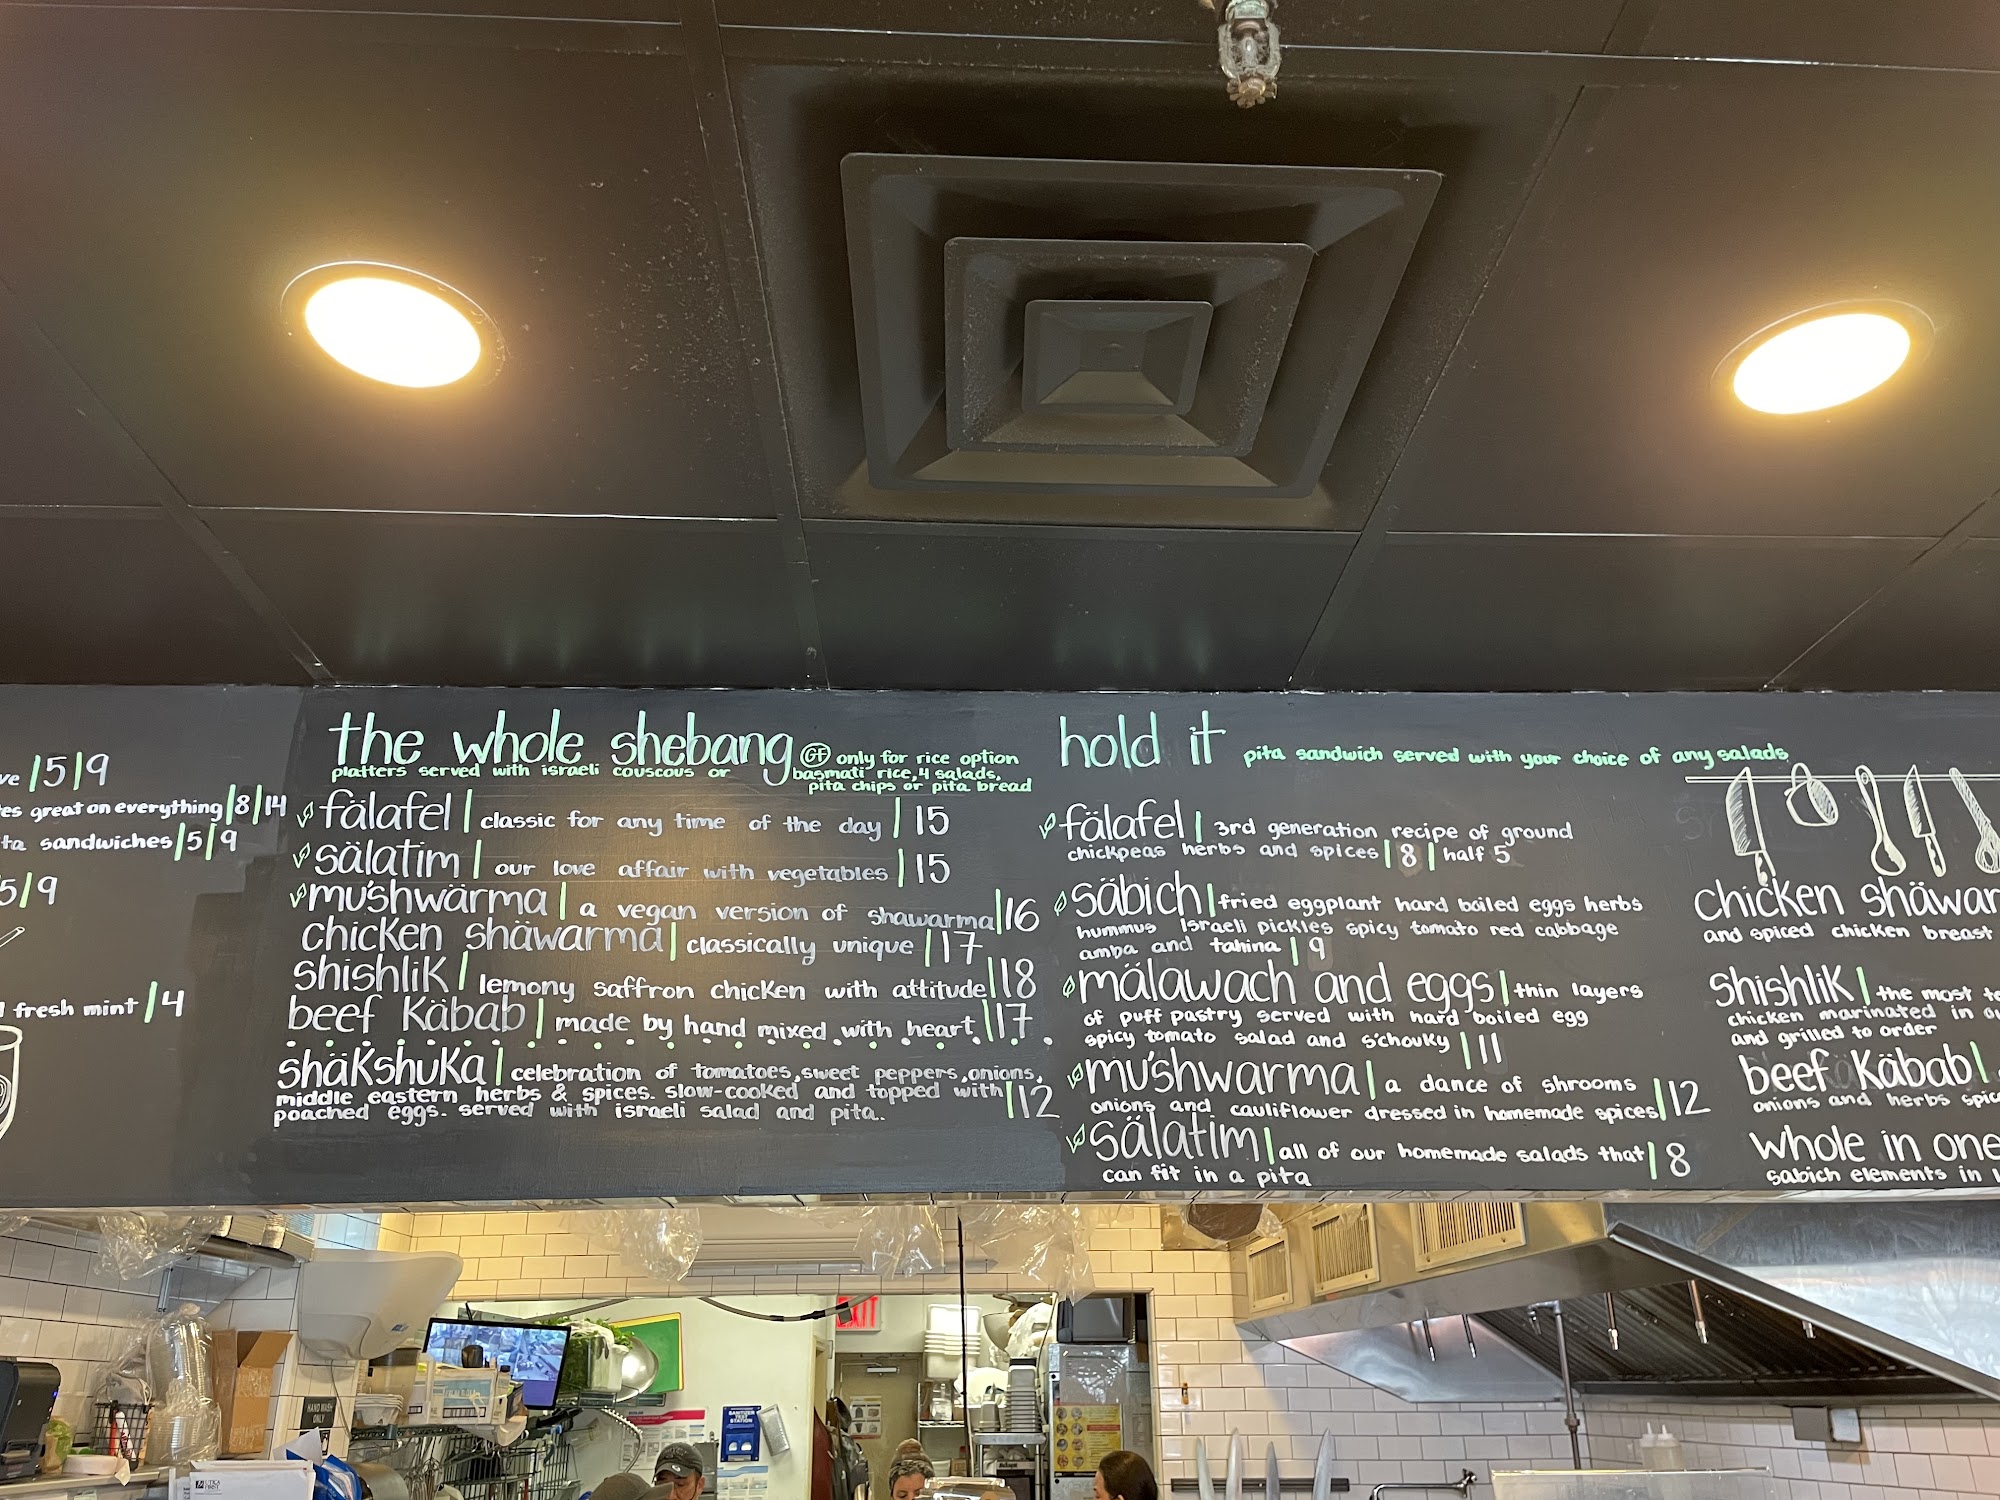 ve | 5 | 9
es great on everything | 8 | 14
ta sandwiches | 5 | 9
5 | 9
fresh mint | 4
the whole shebang GF only for rice option
platters served with israeli couscous or basmati rice, 4 salads,
pita chips or pita bread
fälafel | classic for any time of the day | 15
sälatim | our love affair with vegetables | 15
mu'shwärma | a vegan version of shawarma | 16
chicken shäwarma | classically unique | 17
shishlik | lemony saffron chicken with attitude | 18
beef Käbab | made by hand mixed with heart | 17
shäkshuka | celebration of tomatoes, sweet peppers, onions,
middle eastern herbs & spices. slow-cooked and topped with | 12
poached eggs. served with israeli salad and pita.
hold it pita sandwich served with your choice of any salads
fälafel | 3rd generation recipe of ground
chickpeas herbs and spices | 8 | half 5
säbich | fried eggplant hard boiled eggs herbs
hummus Israeli pickles spicy tomato red cabbage
amba and tahina | 9
mälawach and eggs | thin layers
of puff pastry served with hard boiled egg
spicy tomato salad and s'chouky | 11
mu'shwarma | a dance of shrooms
onions and cauliflower dressed in homemade spices | 12
sälatim | all of our homemade salads that | 8
can fit in a pita
chicken shäwar
and spiced chicken breast
shishlik | the most te
chicken marinated in
and grilled to order
beef Käbab |
onions and herbs spic
whole in one
sabich elements in
EXIT
HAND WASH
ONLY
SANITIZER
TEST
STATION